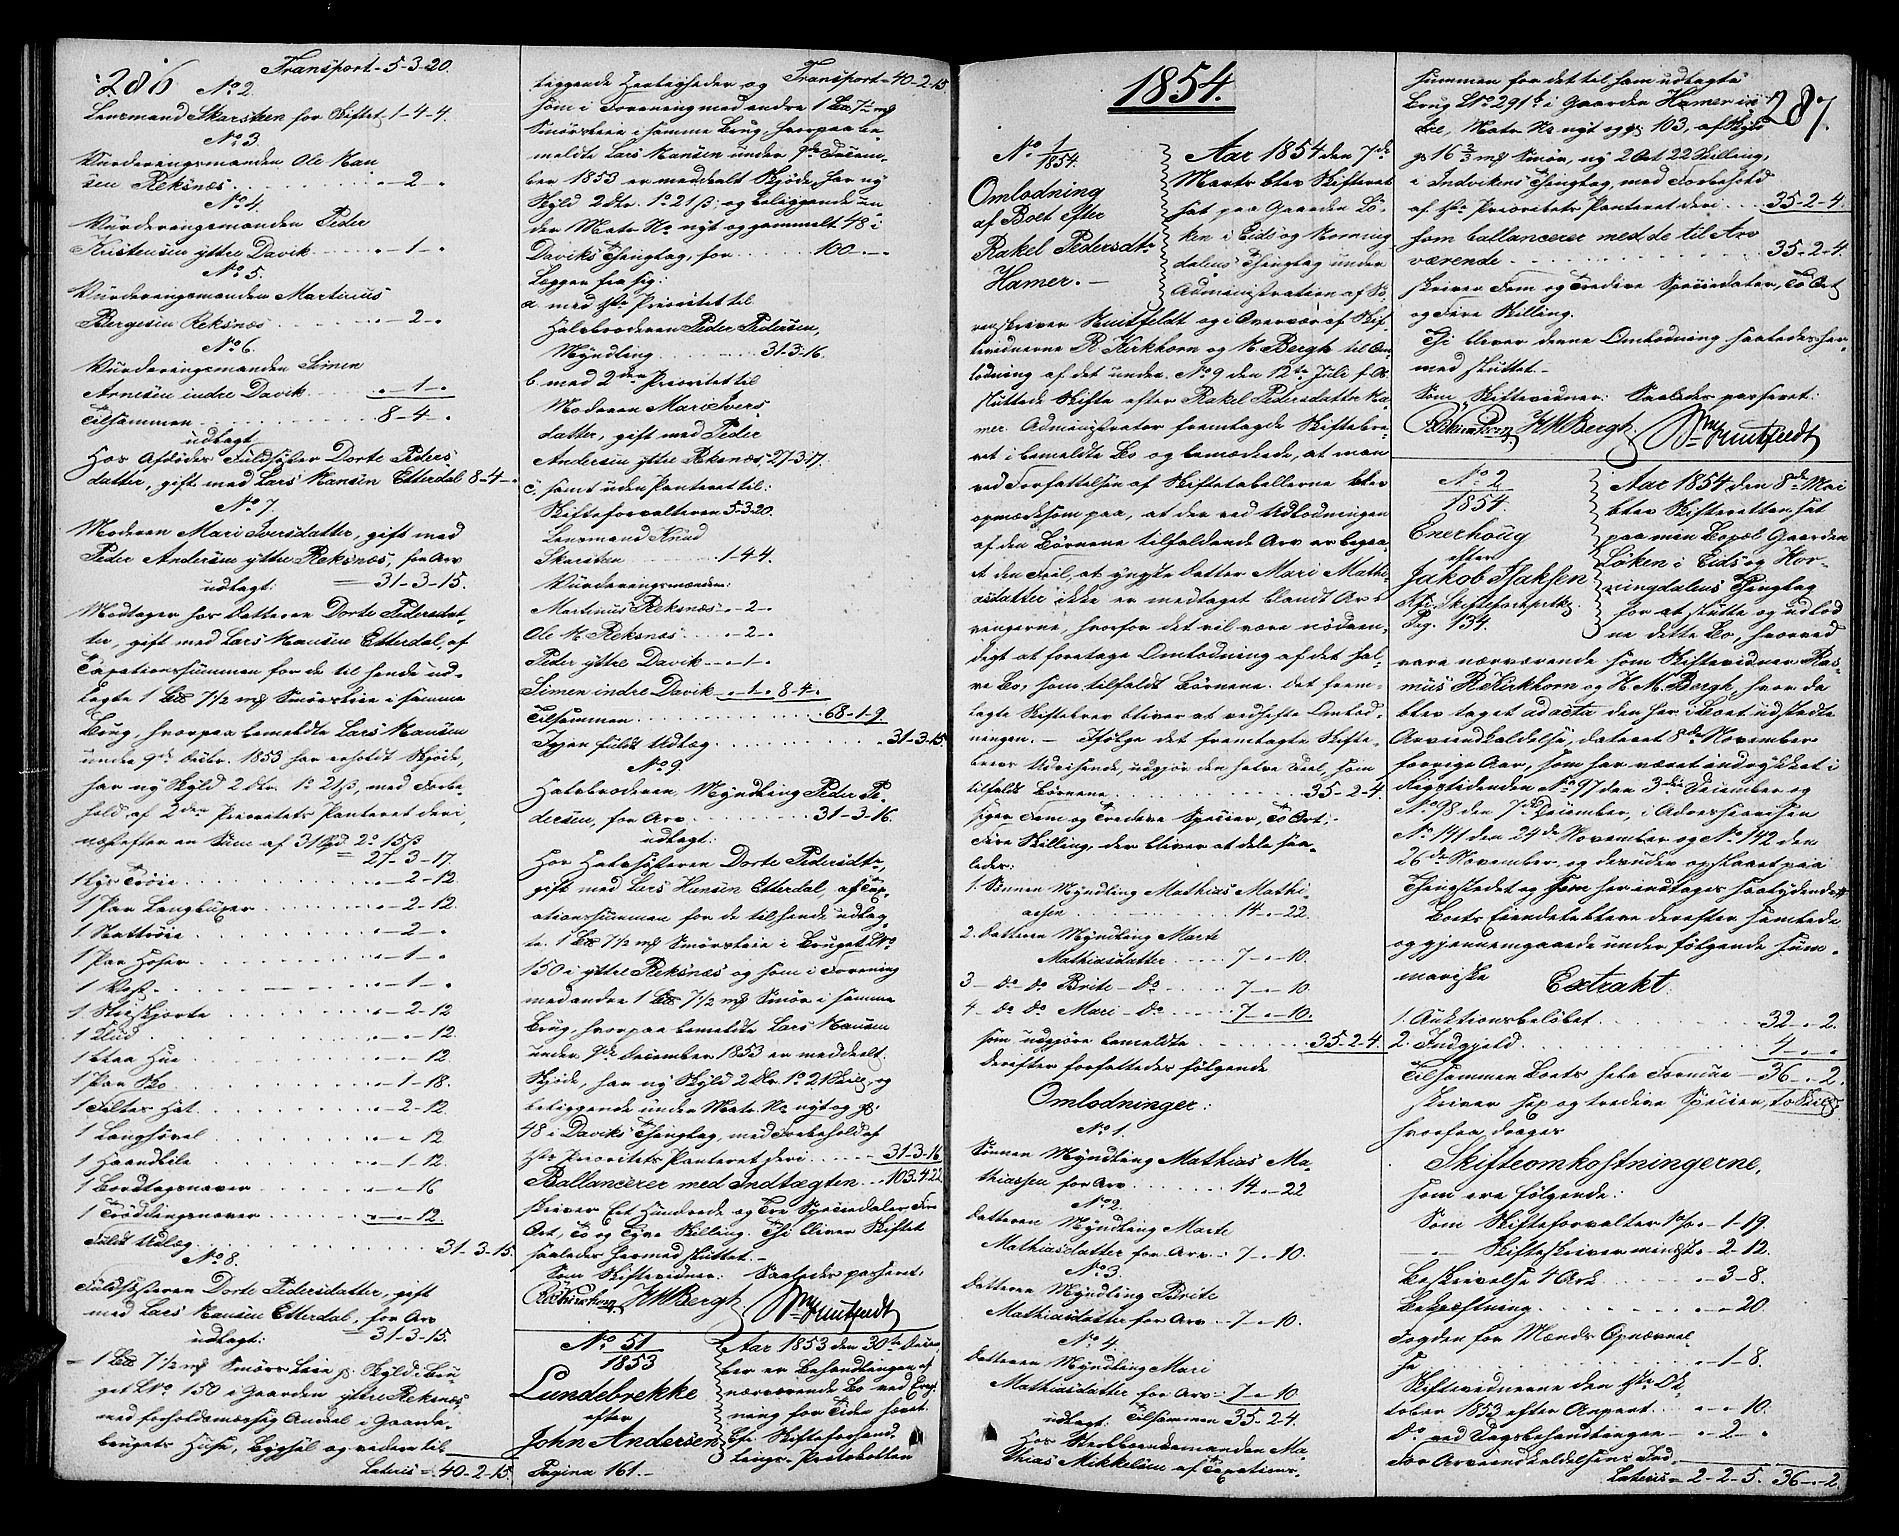 286
Transport - 5-3-20.
No 2.
Lensmand Skarsten for Skiftet - 1-4-4.
No 3.
Vurderingsmanden Ole Han
sen Reksnæs . . . . „-2-„
No 4.
Vurderingsmanden Peder
Kristensen yttre Davik . . . „-1-„
No 5.
Vurderingsmanden Martinus
Børgesen Reksnæs . . . . „-2-„
No 6.
Vurderingsmanden Simen
Arnesen indre Davik . . . „-1-„
Tilsammen . . . . 8-4-„
udlagt
Hos Afdødes Fuldsøster Dorte Peders
datter, gift med Lars Hansen Etterdal 8-4-„
No 7.
Moderen Mari Iversdatter, gift med
Peder Andersen yttre Reksnæs, for Arv
udlagt: = 31-3-15.
Modtager hos Datteren Dorte Pedersdat-
ter, gift med Lars Hansen Etterdal, af
Taxationssummen for de til hende ud-
lagte 1 Lb 7 1/2 mk Smørsleie i samme
Brug, hvorpaa bemeldte Lars Hansen
under 9de Decbr. 1853 har erholdt Skjøde,
har ny Skyld 2 Dlr. 1o 21 ß, med Forbe-
hold af 2den Prioritets Panteret deri,
næstefter en Sum af 31 Spd 2o 15 ß
27-3-17.
1 Lys Trøie . . . . „-2-12.
1 Par Langbuxer . . . „-2-12.
1 Nattrøie . . . . „-2-„
1 Par Hoser . . . . „-1-„
1 Vest . . . . „-1-„
1 Skjorte . . . . „-2-12
1 Klud . . . . „-„-12.
1 blaa Hue . . . . „-„-12
1 Par Sko . . . . „-1-18.
1 Filtes Hat . . . . „-2-12.
1 Langhøvel . . . . „-„-12
1 Haandbile . . . . „-1-12.
1 Bordtagsnaver . . . „-„-16
1 Trøddingsnaver . . . „-„-12.
Fuldt Udlæg . . . . 31-3-15.
No 8.
Fuldsøsteren Dorte Pedersdatter, gift
med Lars Hansen Etterdal, for Arv
udlagt: = 31-3-15.
1 Lb 7 1/2 mk Smørsleie gs. Skyld i Bru-
get LNo 150 i Gaarden yttre Reksnæs,
med forholdsmæssig Andel i Gaarde-
brugets Huse, Bygsel og videre til-
Lateris = 40-2-15.
liggende Herligheder og Transport - 40-2-15.
som i Forening med andre 1 Lb 7 1/2 mk
Smørsleie i samme Brug, hvorpaa be-
meldte Lars Hansen under 9de Decem-
ber 1853 er meddeelt Skjøde, har ny
Skyld 2 Dlr. 1o 21 ß og beliggende un
der Matr. No nyt og gammelt 48 i
Daviks Thinglag, for . . . 100-„-„
Lægger fra sig:
a. med 1ste Prioritet til
Halvbroderen Peder Pedersen,
Myndling . . . 31-3-16.
b. med 2den Prioritet til
Moderen Mari Ivers
datter, gift med Peder
Andersen ytre Reksnæs, 27-3-17.
c. samt uden Panteret til:
Skifteforvalteren 5-3-20.
Lensmand Knud
Skarsten . . . 1-4-4.
Vurderingsmænd:
Martinus Reksnæs . „-2-„
Ole H. Reksnæs . . „-2-„
Peder ytre Davik . „-1-„
Simen indre Davik „-1-„ 8-4-„
Tilsammen . . . . 68-1-9
Igjen fuldt Udlæg . . . . „ 31-3-15.
No 9.
Halvbroderen, Myndling Peder Pe-
dersen, for Arv . . . 31-3-16.
udlagt:
Hos Halvsøsteren Dorte Pedersdtr,
gift med Lars Hansen Etterdal, af Tax-
ationssummen for de til hende udlag-
te 1 Lb 7 1/2 mk Smørsleie i Bruget LNo
150 i ytre Reksnæs og som i Forening
med andre 1 Lb 7 1/2 mk Smør i samme
Brug, hvorpaa bemeldte Lars Hansen
under 9de December 1853 er meddeelt
Skjøde, har ny Skyld 2 Dlr. 1o 21 Skill, og
beliggende under Matr. No nyt og gs.
48 i Daviks Thinglag, med Forbehold af
1ste Prioritets Panteret deri . . . 31-3-16
Ballancerer med Indtægten . . 103-4-22
skriver Eet Hundrede og Tre Speciedaler, Fire
Ort, To og Tyve Skilling. Thi bliver Skiftet
saaledes hermed sluttet. -
Som Skiftevidner: Saaledes passeret:
R. Kirkhorn HMBergh, Wm Huitfeldt
No 51
1853
Lundebrekke
efter
John Andersen
Pagina 161. -
Aar 1853 den 30te Decem-
ber er Behandlingen af
nærværende Bo ved Eragt-
ning for Tiden hævet.
Cfr. Skifteforhand-
lings-Protokollen
1854.
287.
No 1
1854.
Omlodning
af Boet efter
Rakel Pedersdtr
Hamer. -
Aar 1854 den 7de
Marts blev Skifteret
sat paa Gaarden Lø-
ken i Eids og Horning
dalens Thinglag under
Administration af So-
renskriver Huitfeldt og i Overvær af Skif-
tevidnerne R. Kirkhorn og H. Bergh til Om-
lodning af det under No 9 den 12te Juli f. A.
sluttede Skifte efter Rakel Pedersdatter Ha-
mer. Administrator fremlagde Skiftebre-
vet i bemeldte Bo og bemærkede, at man
ved Forfattelsen af Skiftetabellerne blev
opmærksom paa, at der ved Udlodningen
af den Børnene tilfaldende Arv er begaa-
et den Feil, at yngste Datter Mari Mathi-
asdatter ikke er medtaget blandt Arv-
ingerne, hvorfor det vil være nødven-
digt at foretage Omlodning af det hal-
ve Bo, som tilfaldt Børnene. Det frem-
lagte Skiftebrev bliver at vedhefte Omlod-
ningen. - Ifølge det fremlagte Skifte-
brevs Udvisende, udgjør den halve Deel, som
tilfaldt Børnene . . . . 35-2-4.
siger Fem og Tredive Specier, To Ort,
Fire Skilling, der bliver at dele saa-
ledes:
1. Sønnen Myndling Mathias Mathi-
assen . . . . 14-„-22.
2. Datteren Myndling Marte
Mathiasdatter . . . 7-„-10.
3 - do do Brite - do . . . 7-„-10.
4 - do do Mari - do . . . 7-„-10.
som udgjøre bemeldte . . . . 35-2-4.
Derefter forfattedes følgende
Omlodninger:
No 1.
Sønnen Myndling Mathias Ma-
thiassen for Arv . . . 14-„-22
No 2.
Datteren Myndling Marte
Mathiasdatter for Arv . : 7-„-10.
No 3.
Datteren Myndling Brite
Mathiasdatter for Arv . . 7-„-10.
No 4.
Datteren Myndling Mari
Mathiasdatter for Arv . : 7-„-10.
udlagt: Tilsammen 35-2-4.
Hos Sterkboendemanden Ma-
thias Mikkelsen af Taxations-
summen for det til ham udlagte
Brug LNo 291 b i Gaarden Hamer in-
dre, Matr. No nyt og gs 103, af Skyld
gs 16 2/3 mk Smør, ny 2 Ort 22 Skilling,
i Indvikens Thinglag, med Forbehold
af 1ste Prioritets Panteret deri . . . 35-2-4.
som ballancerer med de til Arv
værende . . . . 35-2-4.
skriver Fem og Tredive Speciedaler, To Ort
og Fire Skilling.
Thi bliver denne Omlodning saaledes her-
med sluttet. -
Som Skiftevidner: Saaledes passeret:
R. Kirkhorn HMBergh, Wm Huitfeldt
No 2
1854.
Enerhoug
efter
Jakob Isaksen
Cfr. Skifteforhprtk.
Pag. 134.
Aar 1854 den 8de Mai
blev Skifteretten sat
paa min Bopæl Gaarden
Løken i Eids og Hor-
ningdalens Thinglag
for at slutte og udlod
ne dette Bo, hvorved
vare nærværende som Skiftevidner Ras-
mus R. Kirkhorn og H. M. Bergh, hvor da
blev taget ad acta den her i Boet udstedte
Arveindkaldelse, dateret 8de November
forrige Aar, som har været indrykket i
Rigstidenden No 97 den 3die December og
No 98 den 7de December, i Adresseavisen
No 141 den 24de November og No 142 den
26de November, og desuden opslaaet paa
Thingstedet og som her indtages saalydende
Boets Eiendele bleve derefter samlede
og gjennemgaaede under følgende sum-
mariske Extrakt:
1. Auktionsbeløbet . . . . 32-„-2.
2. Indgjeld . . . . 4-„-„
Tilsammen Boets hele Formue - 36-„-2.
skriver Sex og tredive Specier, to Skill,
hvorfra drages
Skifteomkostningerne,
som ere følgende:
Som Skifteforvalter 1 % „-1-19.
„ Skifteskriver mindst - „-2-12.
Beskrivelse 4 Ark . . . „-3-8.
Bekræftning . . . . „-„-20.
Fogden for Mænds Opnævnel
se . . . . „-1-8.
Skiftevidnerne den 1ste Ok
tober 1853 efter Anpart . . „-„-10.
do ved Dagsbehandlingen - „-2-„
For Arveindkaldelsens Ind-
Lateris = 2-2-5. 36-„-2.